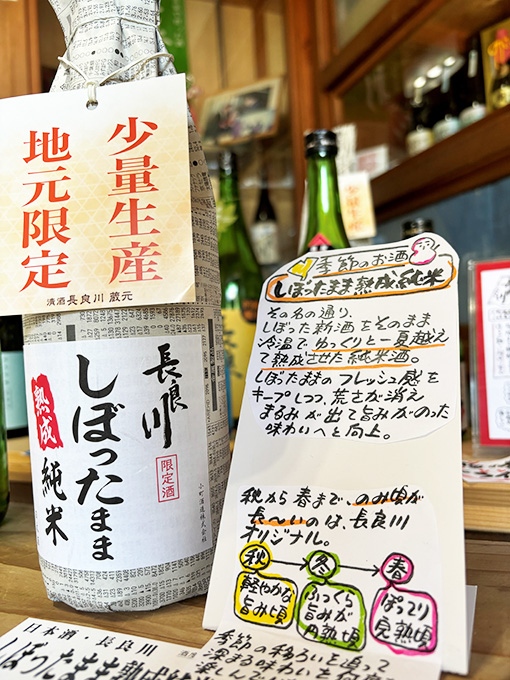 少量生産
地元限定
清酒 長良川 蔵元
長良川
限定酒
しぼったまま
熟成
純米
小町酒造株式会社
季節のお酒
しぼったまま熟成純米
その名の通り、
しぼった新酒をそのまま
冷温でゆっくりと一夏越え
て熟成させた純米酒。
しぼたままのフレッシュ感を
キープしつつ、荒さが消え
まるみが出て旨みがのった
味わいへと向上。
秋から春まで、のみ頃が
長〜いのは、長良川
オリジナル。
秋→冬→春
軽やかな
旨み頃
ふっくら
旨みが
円熟頃
ぽってり
完熟頃
季節の移ろいを追って
深まる味わいを
日本酒・長良川
しぼったまま熟成純
少量生産